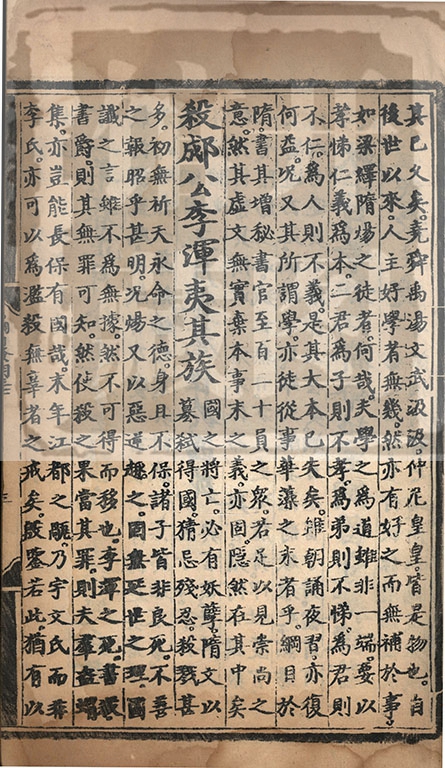 其已久矣。堯舜禹湯文武汲汲。仲尼皇皇。皆是物也。自
後世以來。人主好學者無幾。然亦有好之而無補於事。
如梁繹隋煬之徒者。何哉。夫學之爲道雖非一端。要以
孝悌仁義爲本。二君爲子則不孝。爲弟則不悌。爲君則
不仁。爲人則不義。是其大本已失矣。雖朝誦夜習。亦復
何益。况又其所謂學。亦徒從事華藻之末者乎。綱目於
隋。書其增秘書官至百一十員之衆。若足以見崇尚之
意。然其虛文無實。棄本事末之義。亦固隱然在其中矣
殺郕公李渾夷其族
國之將亡。必有妖孽。隋文以
簒弑得國。猜忌殘忍。殺戮甚
多。初無祈天永命之德。身且不保。諸子皆非良死。不善
之報。昭乎甚明。况煬又以惡逆繼之。固無延世之理。圖
讖之言。雖不爲無據。然不可得而移也。李渾之死。書殺
書爵。則其無罪可知。然使殺之果當其罪。則夫羣盗
集。亦豈能長保有國哉。末年江都之禍。乃宇文氏而非
李氏。亦可以爲濫殺無辜者之戒矣。殷鑒若此。猶有以